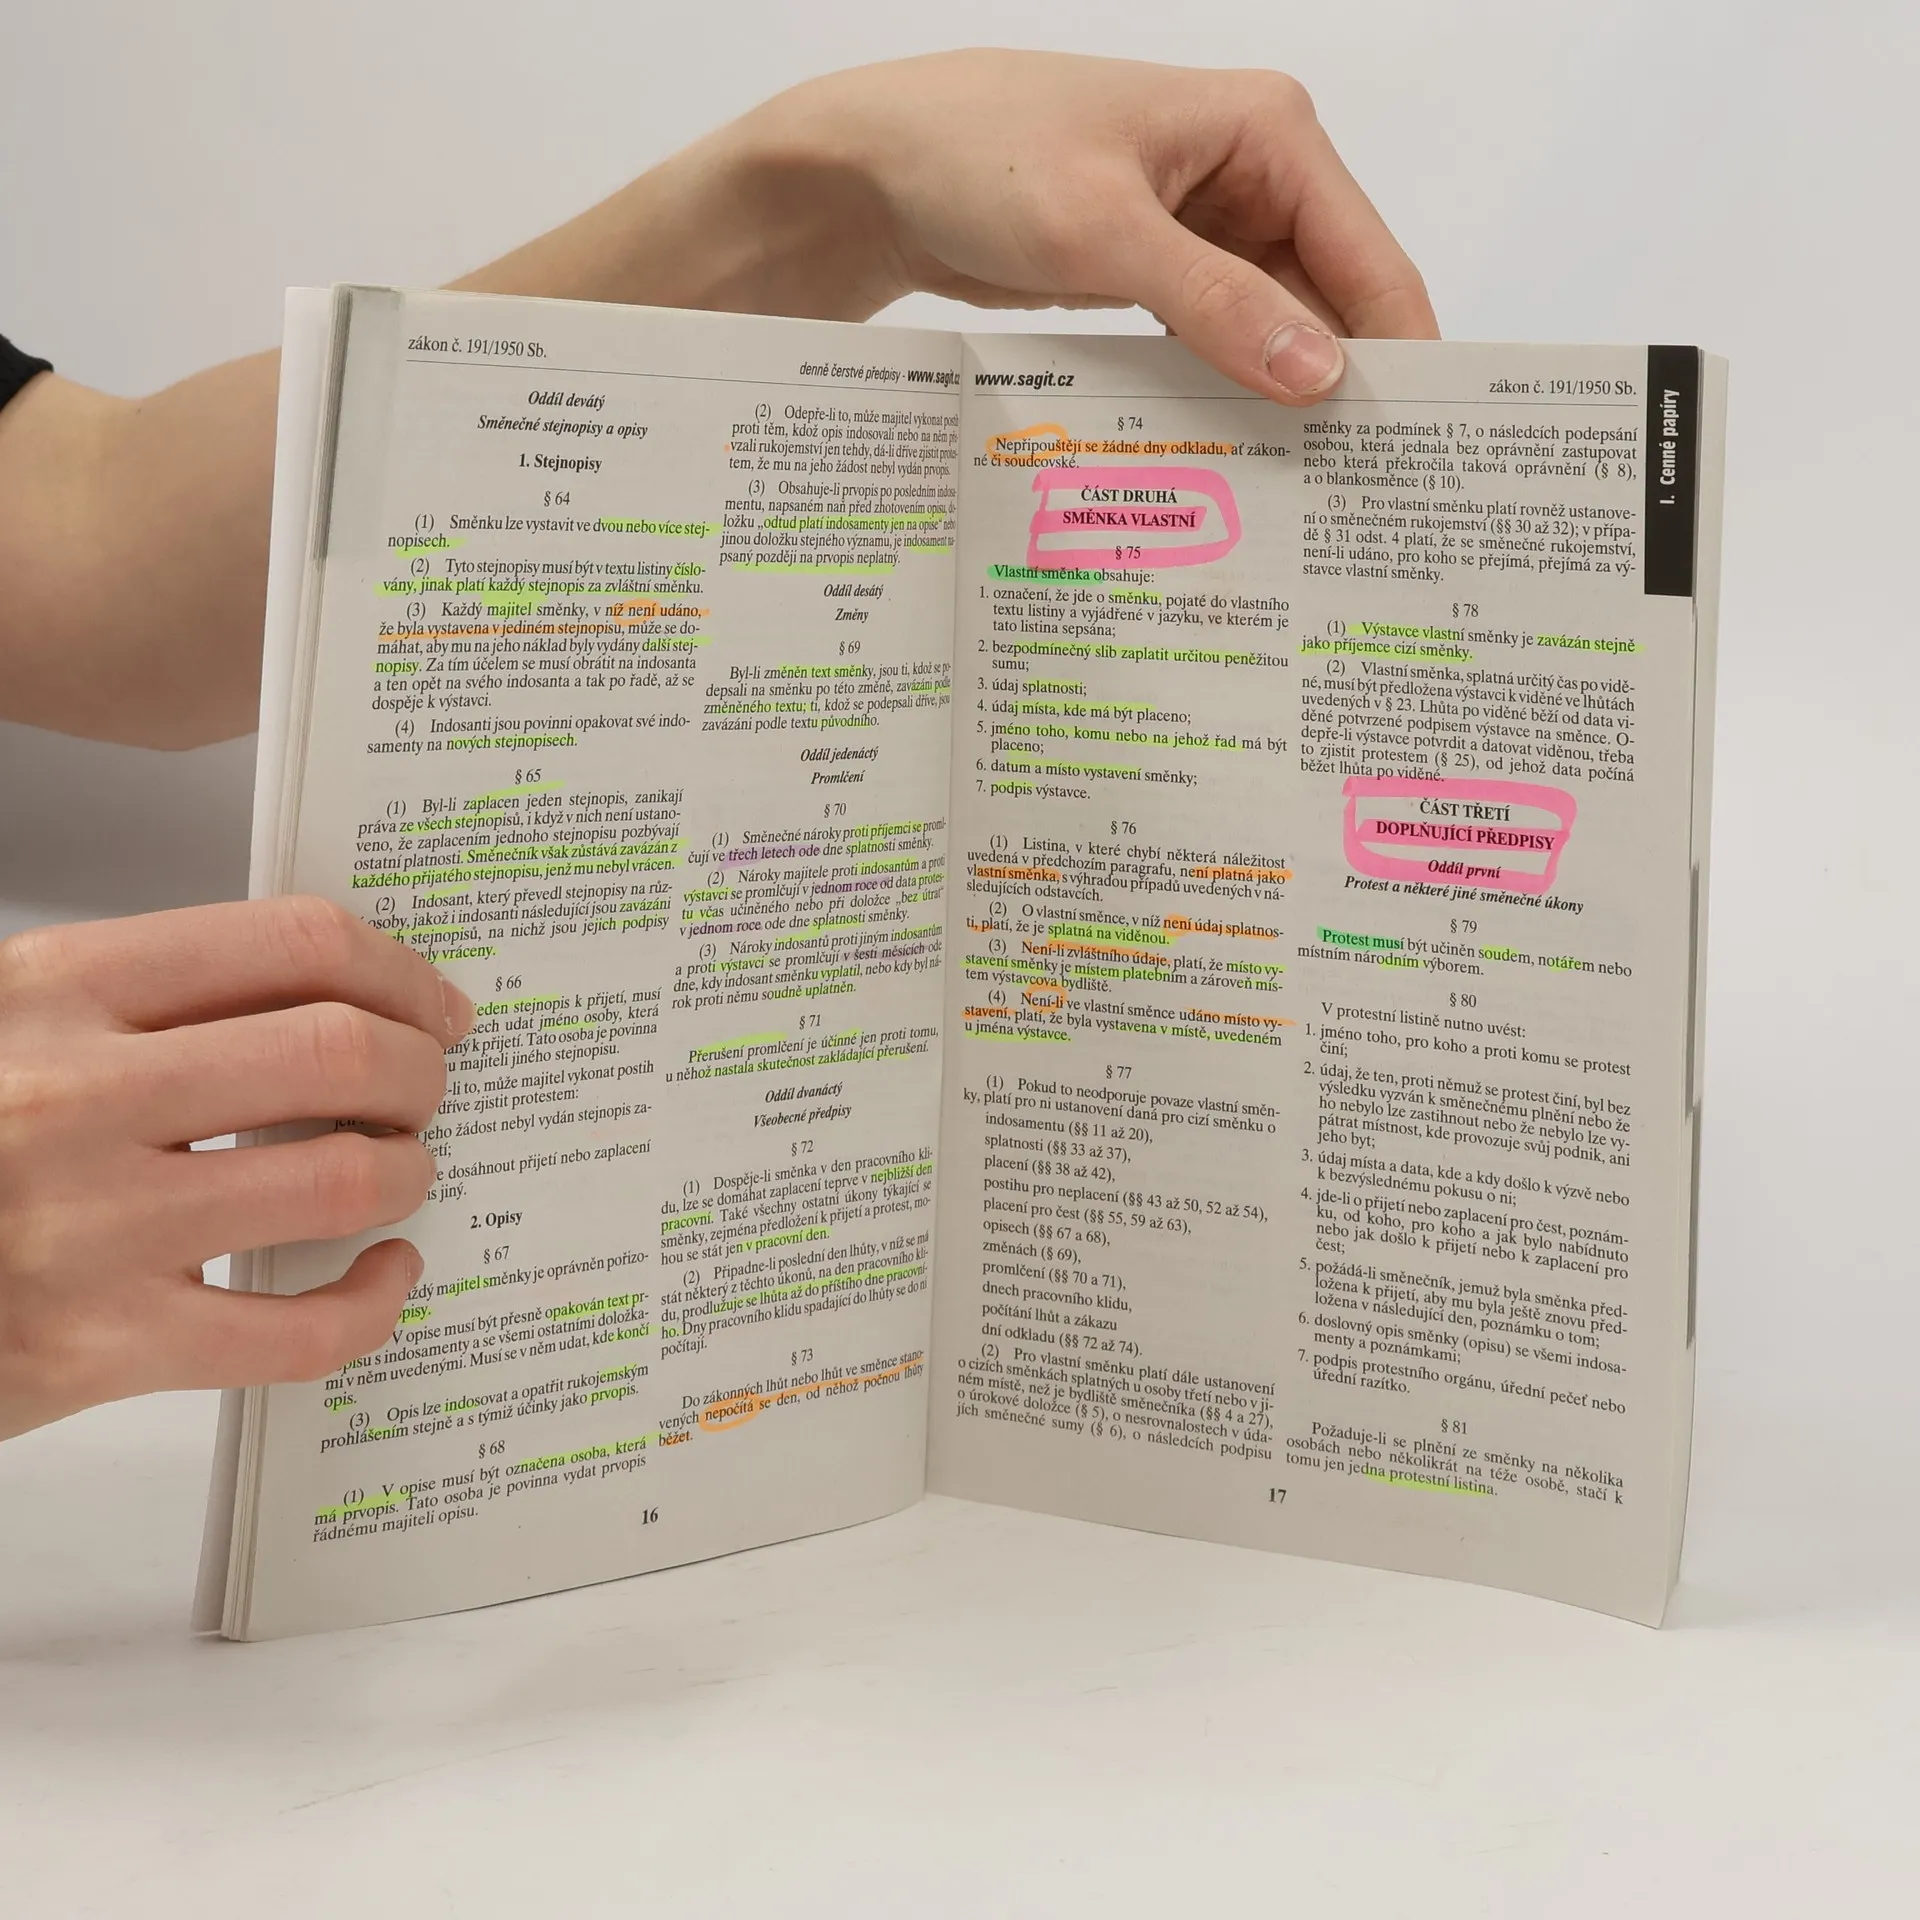 zákon č. 191/1950 Sb.
denně čerstvé předpisy - www.sagit.cz
Oddíl devátý
Směnečné stejnopisy a opisy
1. Stejnopisy
§ 64
(1) Směnku lze vystavit ve dvou nebo více stej-
nopisech.
(2) Tyto stejnopisy musí být v textu listiny číslo-
vány, jinak platí každý stejnopis za zvláštní směnku.
(3) Každý majitel směnky, v níž není udáno,
že byla vystavena v jediném stejnopisu, může se do-
máhat, aby mu na jeho náklad byly vydány další stej-
nopisy. Za tím účelem se musí obrátit na indosanta
a ten opět na svého indosanta a tak po řadě, až se
dospěje k výstavci.
(4) Indosanti jsou povinni opakovat své indo-
samenty na nových stejnopisech.
§ 65
(1) Byl-li zaplacen jeden stejnopis, zanikají
práva ze všech stejnopisů, i když v nich není ustano-
veno, že zaplacením jednoho stejnopisu pozbývají
ostatní platnosti. Směnečník však zůstává zavázán z
každého přijatého stejnopisu, jenž mu nebyl vrácen.
(2) Indosant, který převedl stejnopisy na růz-
osoby, jakož i indosanti následující jsou zavázáni
stejnopisů, na nichž jsou jejich podpisy
vráceny.
§ 66
jeden stejnopis k přijetí, musí
udat jméno osoby, která
k přijetí. Tato osoba je povinna
majiteli jiného stejnopisu.
-li to, může majitel vykonat postih
dříve zjistit protestem:
jeho žádost nebyl vydán stejnopis za-
dosáhnout přijetí nebo zaplacení
jiný.
2. Opisy
§ 67
majitel směnky je oprávněn pořizo-
V opise musí být přesně opakován text pr-
s indosamenty a se všemi ostatními doložka-
mi v něm uvedenými. Musí se v něm udat, kde končí
opis.
(3) Opis lze indosovat a opatřit rukojemským
prohlášením stejně a s týmiž účinky jako prvopis.
§ 68
(1) V opise musí být označena osoba, která
má prvopis. Tato osoba je povinna vydat prvopis
řádnému majiteli opisu.
(2) Odepře-li to, může majitel vykonat postih
proti těm, kdož opis indosovali nebo na něm pře-
vzali rukojemství jen tehdy, dá-li dříve zjistit protes-
tem, že mu na jeho žádost nebyl vydán prvopis.
(3) Obsahuje-li prvopis po posledním indosa-
mentu, napsaném naň před zhotovením opisu, do-
ložku „odtud platí indosamenty jen na opise“ nebo
jinou doložku stejného významu, je indosament na-
psaný později na prvopis neplatný.
Oddíl desátý
Změny
§ 69
Byl-li změněn text směnky, jsou ti, kdož se po-
depsali na směnku po této změně, zavázáni podle
změněného textu; ti, kdož se podepsali dříve, jsou
zavázáni podle textu původního.
Oddíl jedenáctý
Promlčení
§ 70
(1) Směnečné nároky proti příjemci se proml-
čují ve třech letech ode dne splatnosti směnky.
(2) Nároky majitele proti indosantům a proti
výstavci se promlčují v jednom roce od data protes-
tu včas učiněného nebo při doložce „bez útrat“
v jednom roce ode dne splatnosti směnky.
(3) Nároky indosantů proti jiným indosantům
a proti výstavci se promlčují v šesti měsících ode
dne, kdy indosant směnku vyplatil, nebo kdy byl ná-
rok proti němu soudně uplatněn.
§ 71
Přerušení promlčení je účinné jen proti tomu,
u něhož nastala skutečnost zakládající přerušení.
Oddíl dvanáctý
Všeobecné předpisy
§ 72
(1) Dospěje-li směnka v den pracovního kli-
du, lze se domáhat zaplacení teprve v nejbližší den
pracovní. Také všechny ostatní úkony týkající se
směnky, zejména předložení k přijetí a protest, mo-
hou se stát jen v pracovní den.
(2) Připadne-li poslední den lhůty, v níž se má
stát některý z těchto úkonů, na den pracovního kli-
du, prodlužuje se lhůta až do příštího dne pracovní-
ho. Dny pracovního klidu spadající do lhůty se do ní
počítají.
§ 73
Do zákonných lhůt nebo lhůt ve směnce stano-
vených nepočítá se den, od něhož počnou lhůty
běžet.
16
www.sagit.cz
zákon č. 191/1950 Sb.
I. Cenné papíry
§ 74
Nepřipouštějí se žádné dny odkladu, ať zákon-
né či soudcovské.
ČÁST DRUHÁ
SMĚNKA VLASTNÍ
§ 75
Vlastní směnka obsahuje:
1. označení, že jde o směnku, pojaté do vlastního
textu listiny a vyjádřené v jazyku, ve kterém je
tato listina sepsána;
2. bezpodmínečný slib zaplatit určitou peněžitou
sumu;
3. údaj splatnosti;
4. údaj místa, kde má být placeno;
5. jméno toho, komu nebo na jehož řad má být
placeno;
6. datum a místo vystavení směnky;
7. podpis výstavce.
§ 76
(1) Listina, v které chybí některá náležitost
uvedená v předchozím paragrafu, není platná jako
vlastní směnka, s výhradou případů uvedených v ná-
sledujících odstavcích.
(2) O vlastní směnce, v níž není údaj splatnos-
ti, platí, že je splatná na viděnou.
(3) Není-li zvláštního údaje, platí, že místo vy-
stavení směnky je místem platebním a zároveň mís-
tem výstavcova bydliště.
(4) Není-li ve vlastní směnce udáno místo vy-
stavení, platí, že byla vystavena v místě, uvedeném
u jména výstavce.
§ 77
(1) Pokud to neodporuje povaze vlastní směn-
ky, platí pro ni ustanovení daná pro cizí směnku o
indosamentu (§§ 11 až 20),
splatnosti (§§ 33 až 37),
placení (§§ 38 až 42),
postihu pro neplacení (§§ 43 až 50, 52 až 54),
placení pro čest (§§ 55, 59 až 63),
opisech (§§ 67 a 68),
změnách (§ 69),
promlčení (§§ 70 a 71),
dnech pracovního klidu,
počítání lhůt a zákazu
dní odkladu (§§ 72 až 74).
(2) Pro vlastní směnku platí dále ustanovení
o cizích směnkách splatných u osoby třetí nebo v ji-
ném místě, než je bydliště směnečníka (§§ 4 a 27),
o úrokové doložce (§ 5), o nesrovnalostech v úda-
jích směnečné sumy (§ 6), o následcích podpisu
směnky za podmínek § 7, o následcích podepsání
osobou, která jednala bez oprávnění zastupovat
nebo která překročila taková oprávnění (§ 8),
a o blankosměnce (§ 10).
(3) Pro vlastní směnku platí rovněž ustanove-
ní o směnečném rukojemství (§§ 30 až 32); v přípa-
dě § 31 odst. 4 platí, že se směnečné rukojemství,
není-li udáno, pro koho se přejímá, přejímá za vý-
stavce vlastní směnky.
§ 78
(1) Výstavce vlastní směnky je zavázán stejně
jako příjemce cizí směnky.
(2) Vlastní směnka, splatná určitý čas po vidě-
né, musí být předložena výstavci k viděné ve lhůtách
uvedených v § 23. Lhůta po viděné běží od data vi-
děné potvrzené podpisem výstavce na směnce. O-
depře-li výstavce potvrdit a datovat viděnou, třeba
to zjistit protestem (§ 25), od jehož data počíná
běžet lhůta po viděné.
ČÁST TŘETÍ
DOPLŇUJÍCÍ PŘEDPISY
Oddíl první
Protest a některé jiné směnečné úkony
§ 79
Protest musí být učiněn soudem, notářem nebo
místním národním výborem.
§ 80
V protestní listině nutno uvést:
1. jméno toho, pro koho a proti komu se protest
činí;
2. údaj, že ten, proti němuž se protest činí, byl bez
výsledku vyzván k směnečnému plnění nebo že
ho nebylo lze zastihnout nebo že nebylo lze vy-
pátrat místnost, kde provozuje svůj podnik, ani
jeho byt;
3. údaj místa a data, kde a kdy došlo k výzvě nebo
k bezvýslednému pokusu o ni;
4. jde-li o přijetí nebo zaplacení pro čest, poznám-
ku, od koho, pro koho a jak bylo nabídnuto
nebo jak došlo k přijetí nebo k zaplacení pro
čest;
5. požádá-li směnečník, jemuž byla směnka před-
ložena k přijetí, aby mu byla ještě znovu před-
ložena v následující den, poznámku o tom;
6. doslovný opis směnky (opisu) se všemi indosa-
menty a poznámkami;
7. podpis protestního orgánu, úřední pečeť nebo
úřední razítko.
§ 81
Požaduje-li se plnění ze směnky na několika
osobách nebo několikrát na téže osobě, stačí k
tomu jen jedna protestní listina.
17